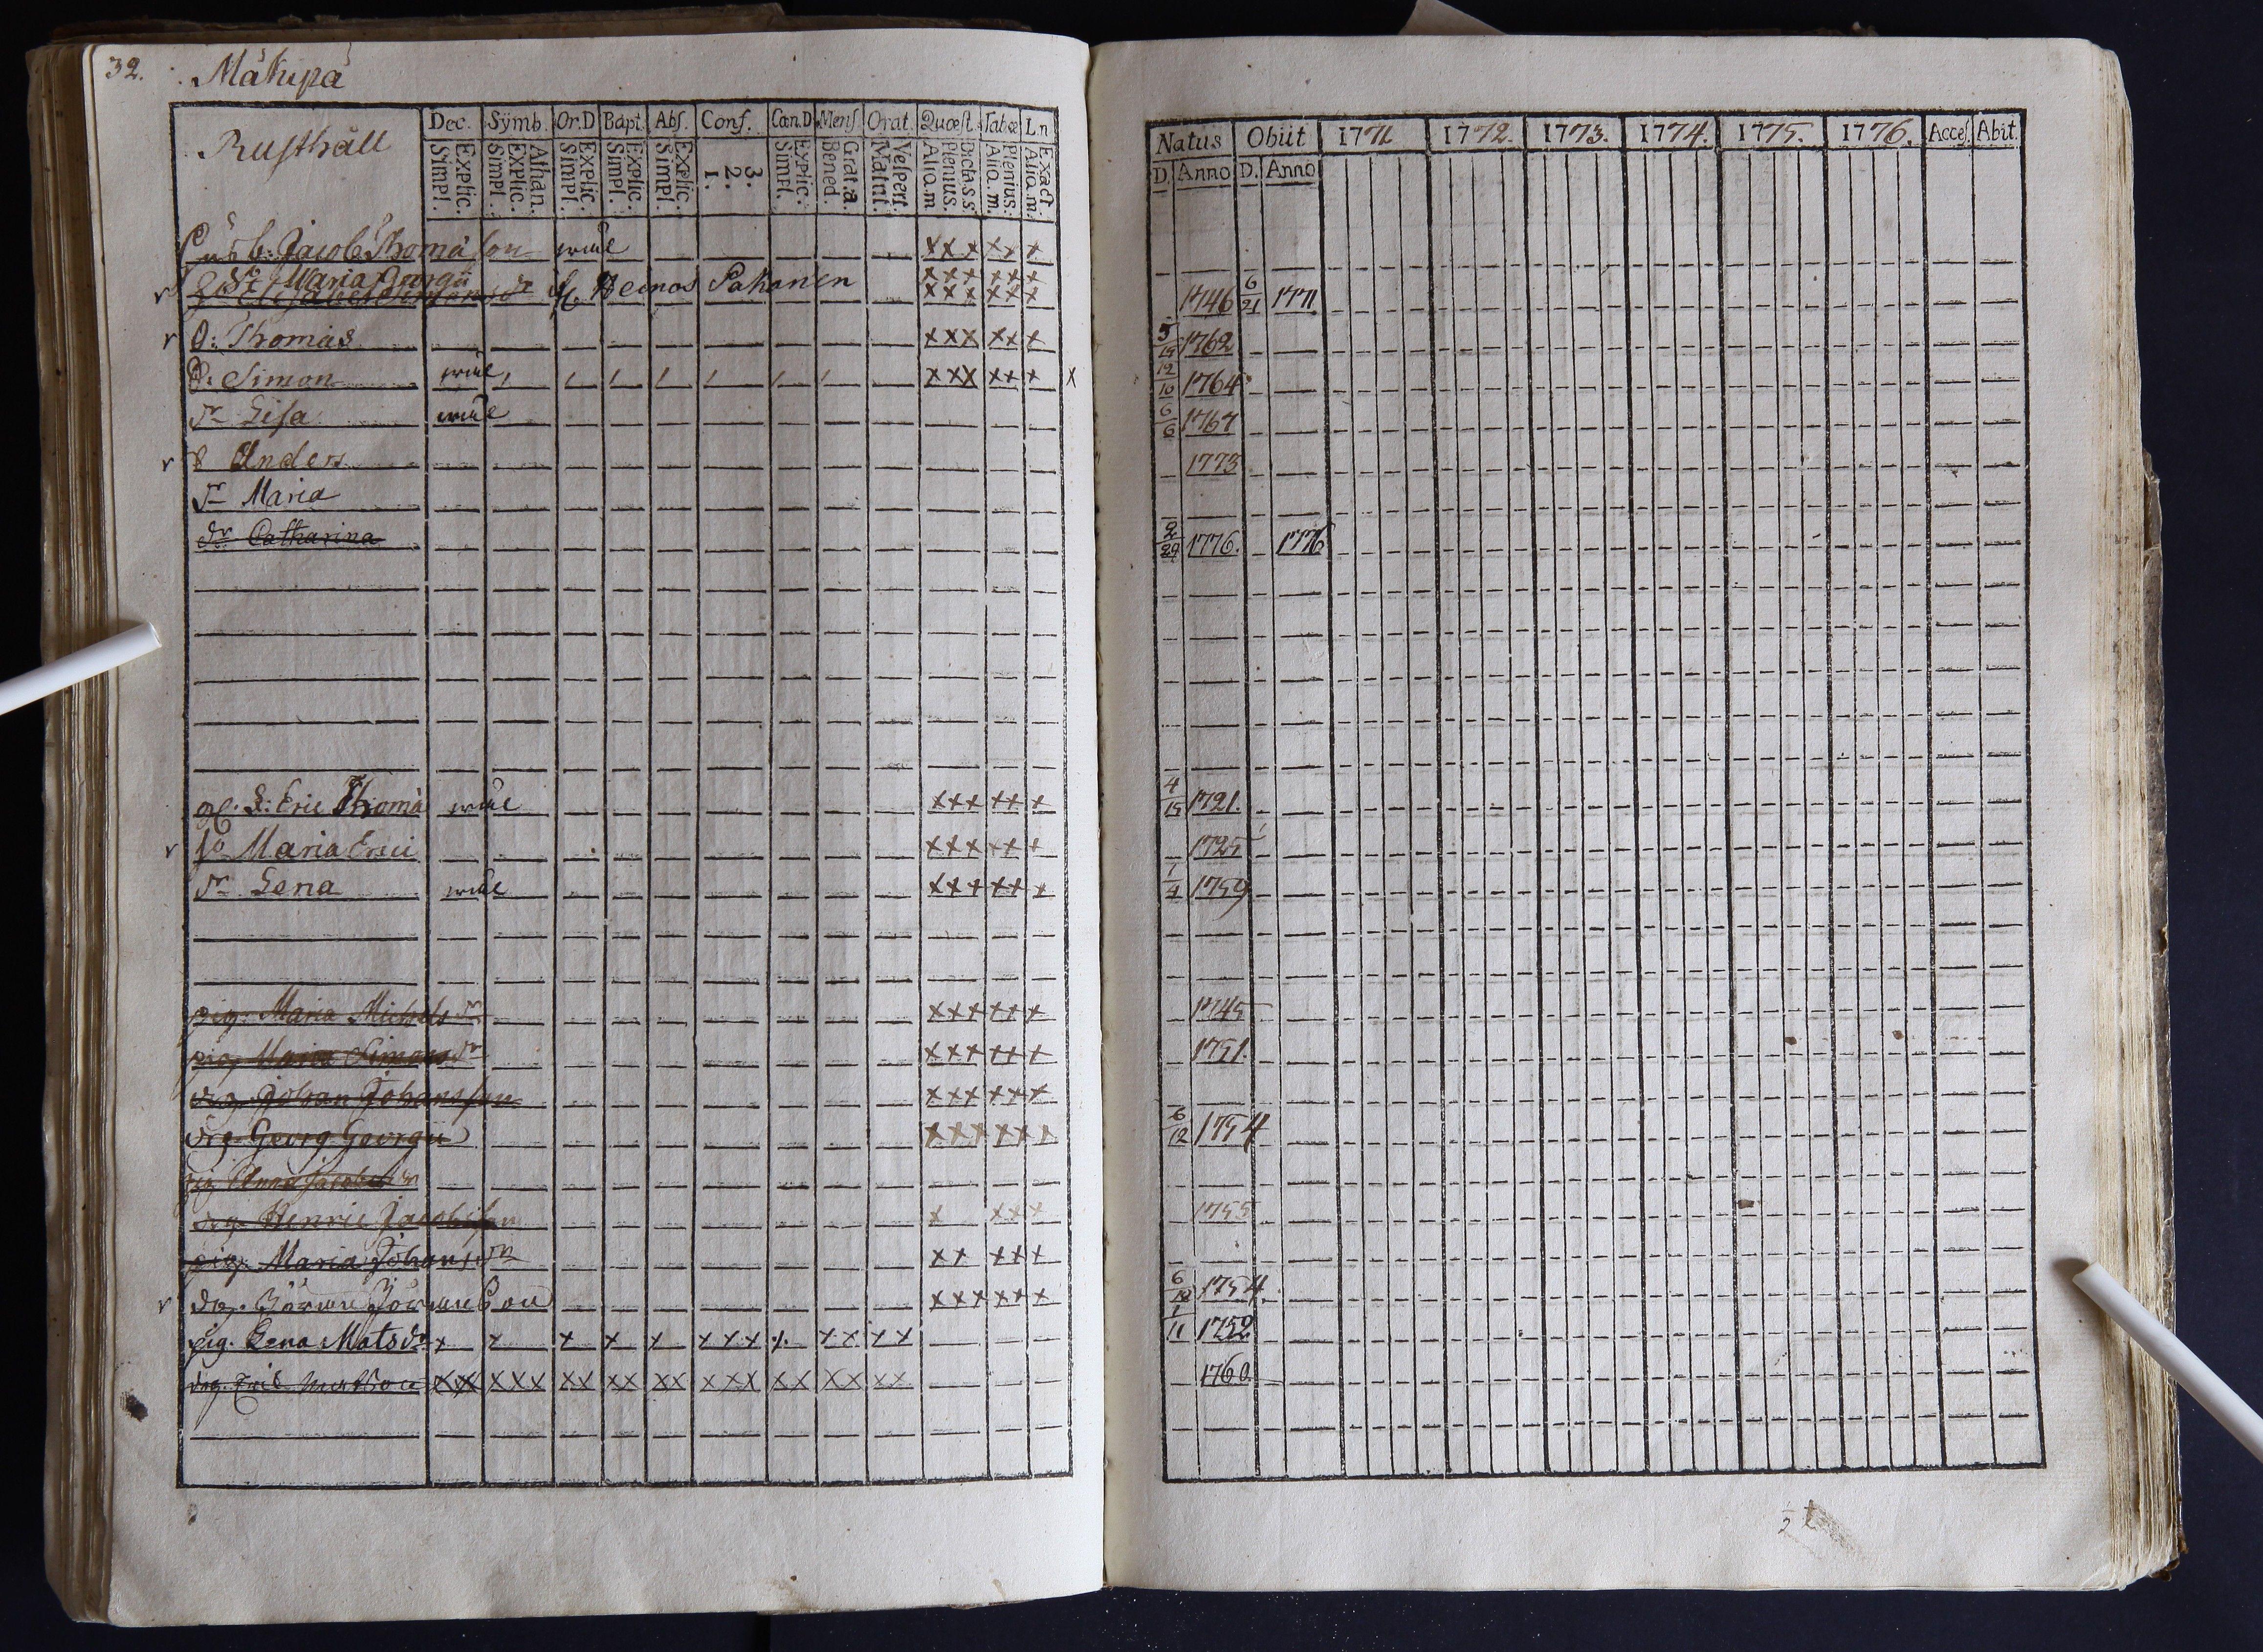 32. Mäkipä
Rusthåll
Dec. Symb. Or.D Bapt. Abs. Conf. Cæn.D Mens. Orat. Quæst. Tabæ L.n
Explic. Simpl. Athan. Explic. Simpl. Explic. Simpl. Explic. Simpl. Explic. Simpl. 3. 2. 1. Explic. Simpl. Grat.a. Bened. Vespert. Matut. Dicta.s.s. Plenius. Aliq.m Plenius. Aliq.m. Exact. Aliq.m.
Natus Obiit 1771 1772. 1773. 1774. 1775. 1776. Acces. Abit.
D. Anno D. Anno
b: Jacob Thomä son xxx xx x
Maria Georgii xxx xx x
Heinos Pakanen xxx xx x 1746 6/21 1771
Thomas xxx xx x 5/15 1762
Simon xxx xx x x 12/10 1764
dr Lisa 6/6 1767
Anders 1773
dr Maria
dr Catharina 2/29 1776. 1776
Eric Thomä xxx xx x 4/15 1721.
Maria Erici xxx xx x 1725
dr Lena xxx xx x 7/4 1759
pig. Maria Michels dr xxx xx x 1745
pig. Maria Simonsdr xxx xx x 1751.
drg. Johan Johansson xxx xx x
drg. Georg Georgii xxx xx x 6/12 1754
pig Anna Jacobs dr
drg. Henric Jacobsson x xx x 1755
pig. Maria Johansdr xx xx x
drg. xxx xx x 6/12 1754.
pig. Lena Matsdr x x x x x xxx x. xx xx 1/11 1752
drg. Eric Mattsson xx xxx xx xx xx xxx xx xx xx 1760.